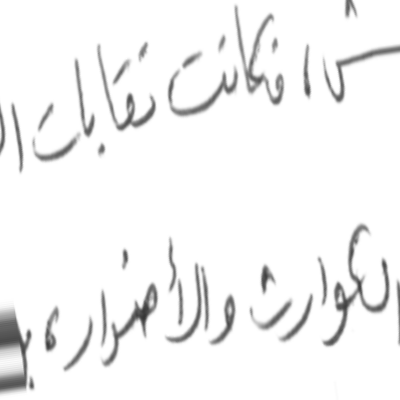 ، فكانت نقابات
الكوارث والأضرار،